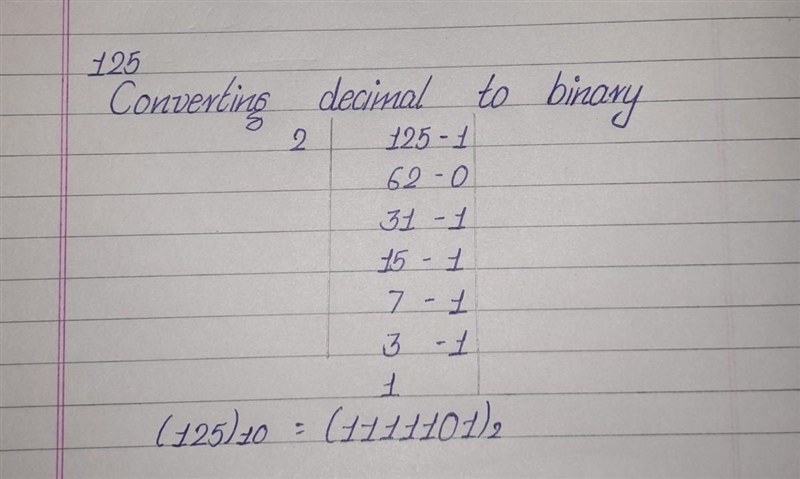 125
Converting decimal to binary
2 125 - 1
62 - 0
31 - 1
15 - 1
7 - 1
3 - 1
1
(125)10 = (1111101)2